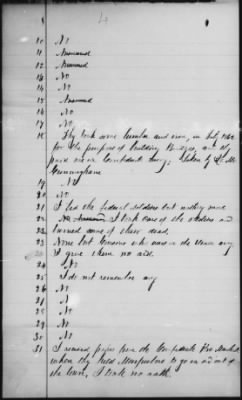 4
10 No
11 Answered
12 Answered
13 No
14 No
15 Answered
16 No
17 No
18 They took some lumber and iron, in July 1862
for the purpose of building Bridges, and they
paid me in Confederate money; taken by
Cunningham
19 No
20 No
21 I fed the federal soldiers but nothing more
22 I took care of the soldiers and
buried some of their dead.
23 None but cousins who were in the
I gave them no aid.
24 No
25 I do not remember any
26 No
27 N
28 No
29 No
30 No
31 I received passes from the Confederate Pro Marshal
when they held Murfreesboro to go in and out of
the town, I took no oath.